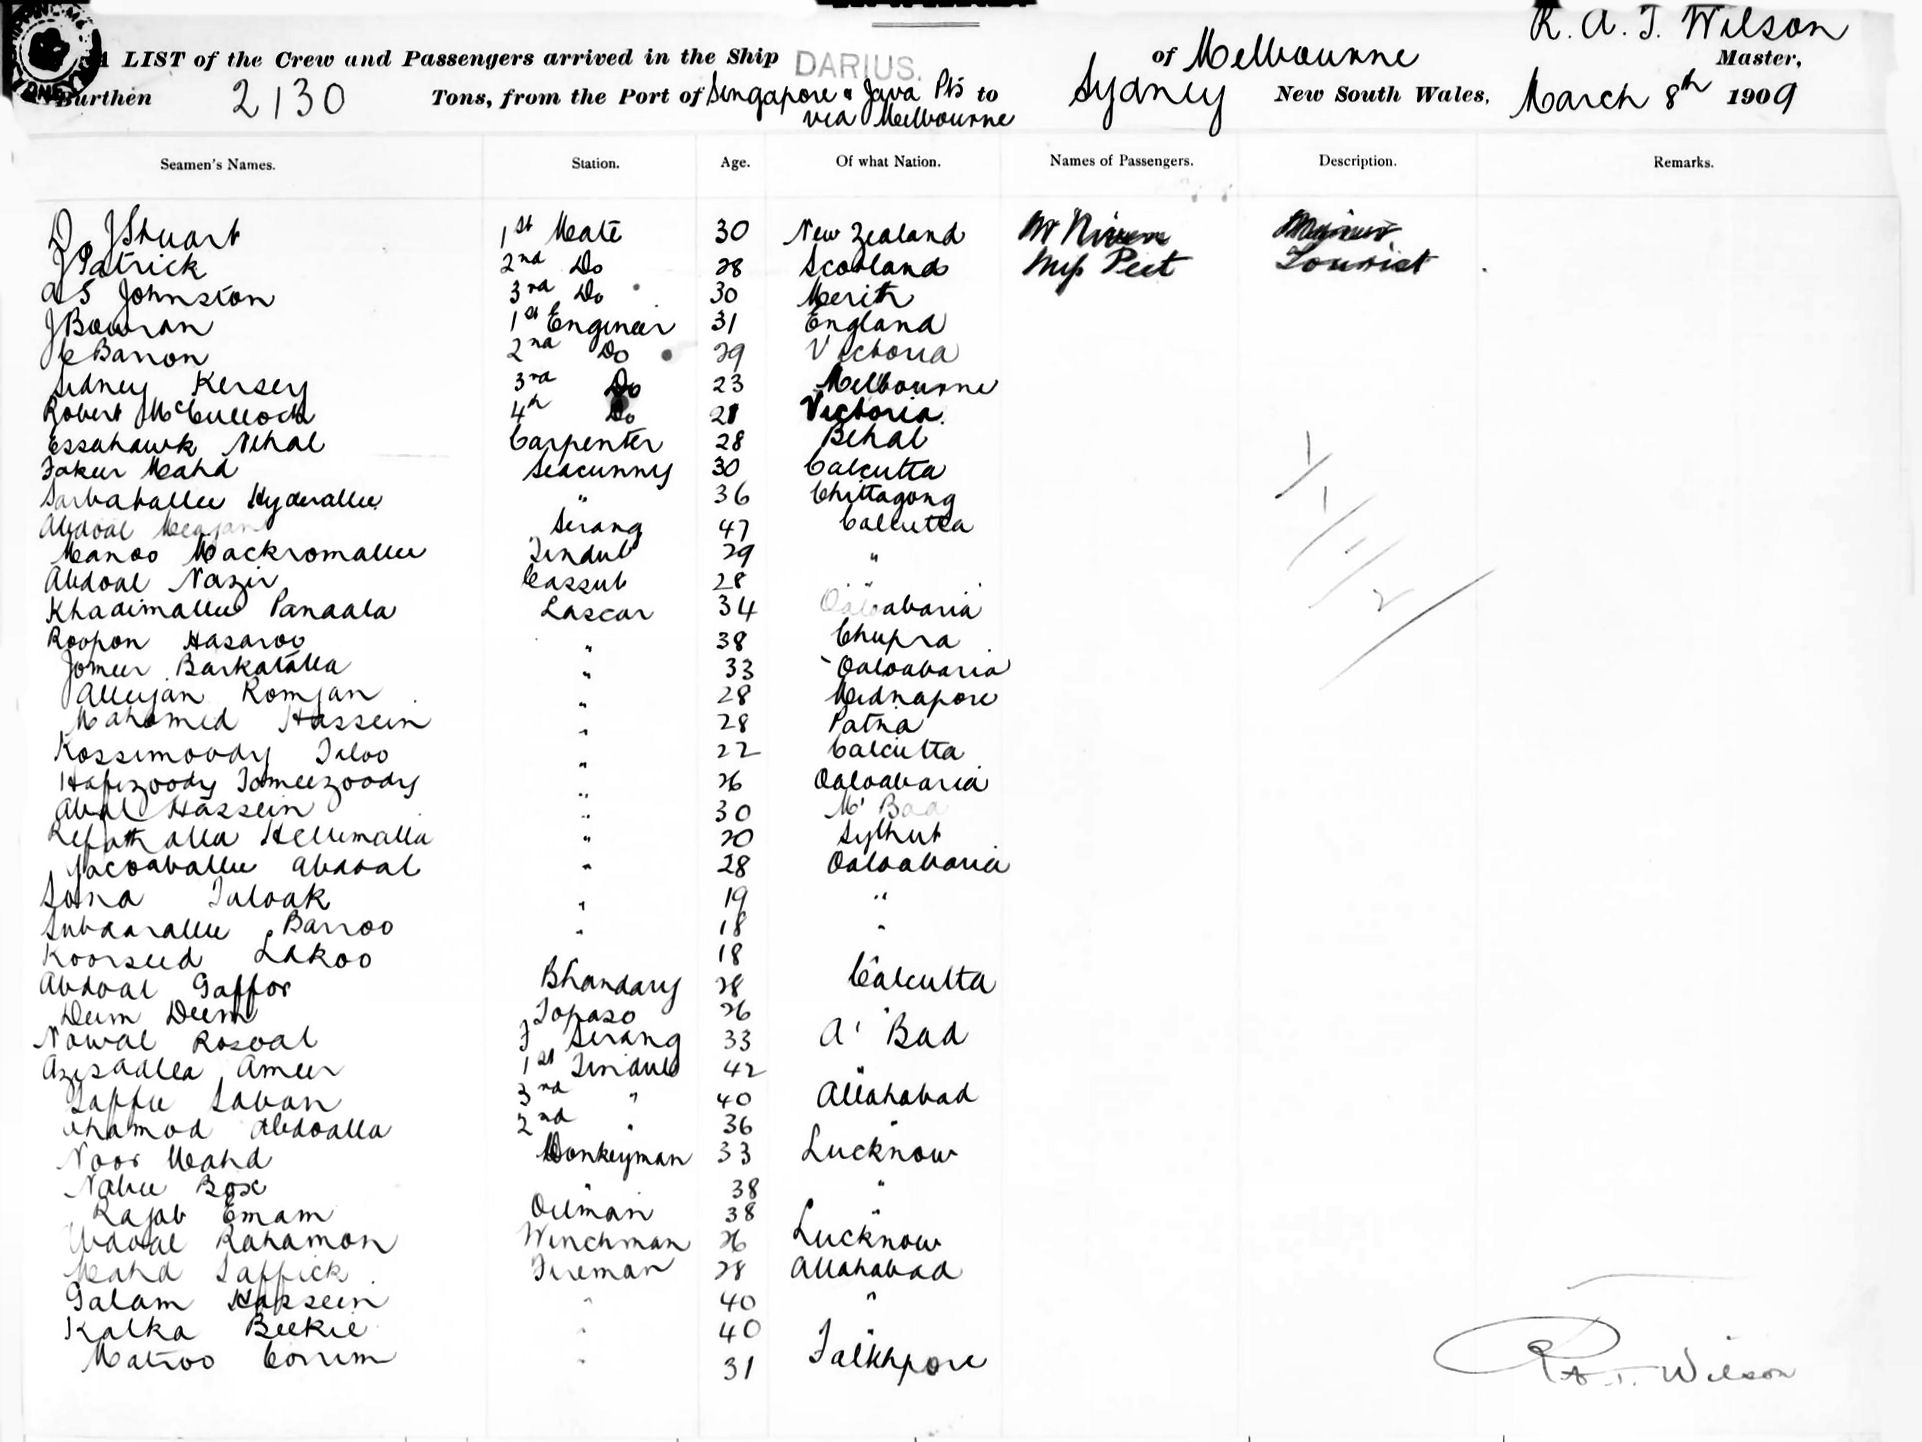 R. A. T. Wilson
A LIST of the Crew and Passengers arrived in the Ship DARIUS. of Melbourne Master,
Burthen 2130 Tons, from the Port of Singapore & Java Pts to Sydney New South Wales, March 8th 1909
via Melbourne
Seamen's Names. Station. Age. Of what Nation. Names of Passengers. Description. Remarks.
D J Stuart 1st Mate 30 New Zealand Mr Niven
J Patrick 2nd Do 28 Scotland Miss Peet Tourist
A S Johnston 3rd Do 30 Merith
J Bowran 1st Engineer 31 England
Barron 2nd Do 29 Victoria
Sidney Kersey 3rd Do 23 Melbourne
Robert McCulloch 4th Do 21 Victoria.
Essahawk Nehal Carpenter 28 Behal
Fakur Mahd Seacunny 30 Calcutta
Sarbahallee Hyderallee " 36 Chittagong
Abdoal Meajan Serang 47 Calcutta
Manoo Mackromallee Tindul 29 "
Abdoal Nazir Cassub 28 "
Khadimallee Panaala Lascar 34 Oaloabaria
Roopon Hasaroo " 38 Chupra
Jomeer Barkatalla " 33 Oaloabaria
Alleyjan Romjan " 28 Midnapore
Mahomed Hassein " 28 Patna
Kossimoody Taloo " 22 Calcutta
Hafizoody Tomeezoody " 26 Oaloabaria
Abal Hassein " 30 M' Bad
Refath alla Hellimalla " 20 Sylhut
Yacoaballee Abdoal " 28 Oaloabaria
Sona Taloak " 19 "
Subdarallee Barroo " 18 "
Koorseed Lakoo 18 "
Abdoal Gaffor Bhandary 28 Calcutta
Deem Deem Topaso 26 "
Nowal Rosoal F Serang 33 A' Bad
Azisadlla Ameer 1st Tindul 42 "
Gaffee Savan 3rd " 40 Allahabad
Abdoalla 2nd " 36 "
Noor Mahd Donkeyman 33 Lucknow
Nabee Box " 38 "
Rajab Emam Oilman 38 "
Abdoal Rahamon Winchman 26 Lucknow
Mahd Saffick Fireman 28 Allahabad
Galam Hassein " 40 "
Kalka Beekie " 40 "
Matroo Corrim " 31 Talkhpore
R. A. T. Wilson